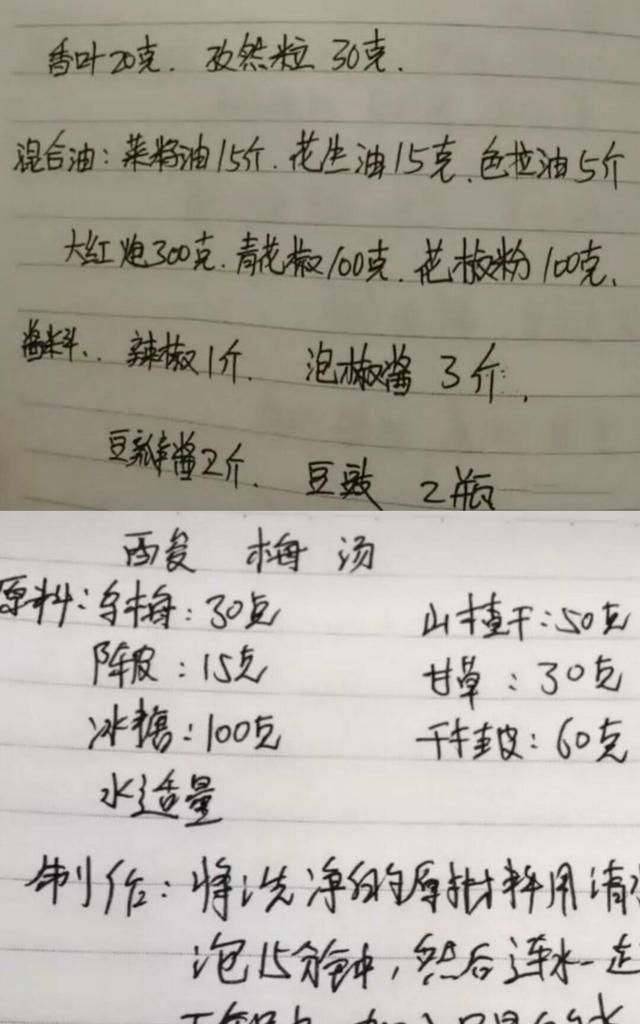 香叶20克. 孜然粒 30克.
混合油: 菜籽油15斤. 花生油15克. 色拉油5斤
大红炮300克. 青花椒100克. 花椒粉100克.
酱料. 辣椒1斤. 泡椒酱 3斤.
豆瓣酱2斤. 豆豉 2瓶
酸梅汤
原料: 乌梅: 30克 山楂干: 50克
陈皮: 15克 甘草: 30克
冰糖: 100克 干桂皮: 60克
水适量
制作: 将洗净的原材料用清
泡15分钟, 然后连水一起